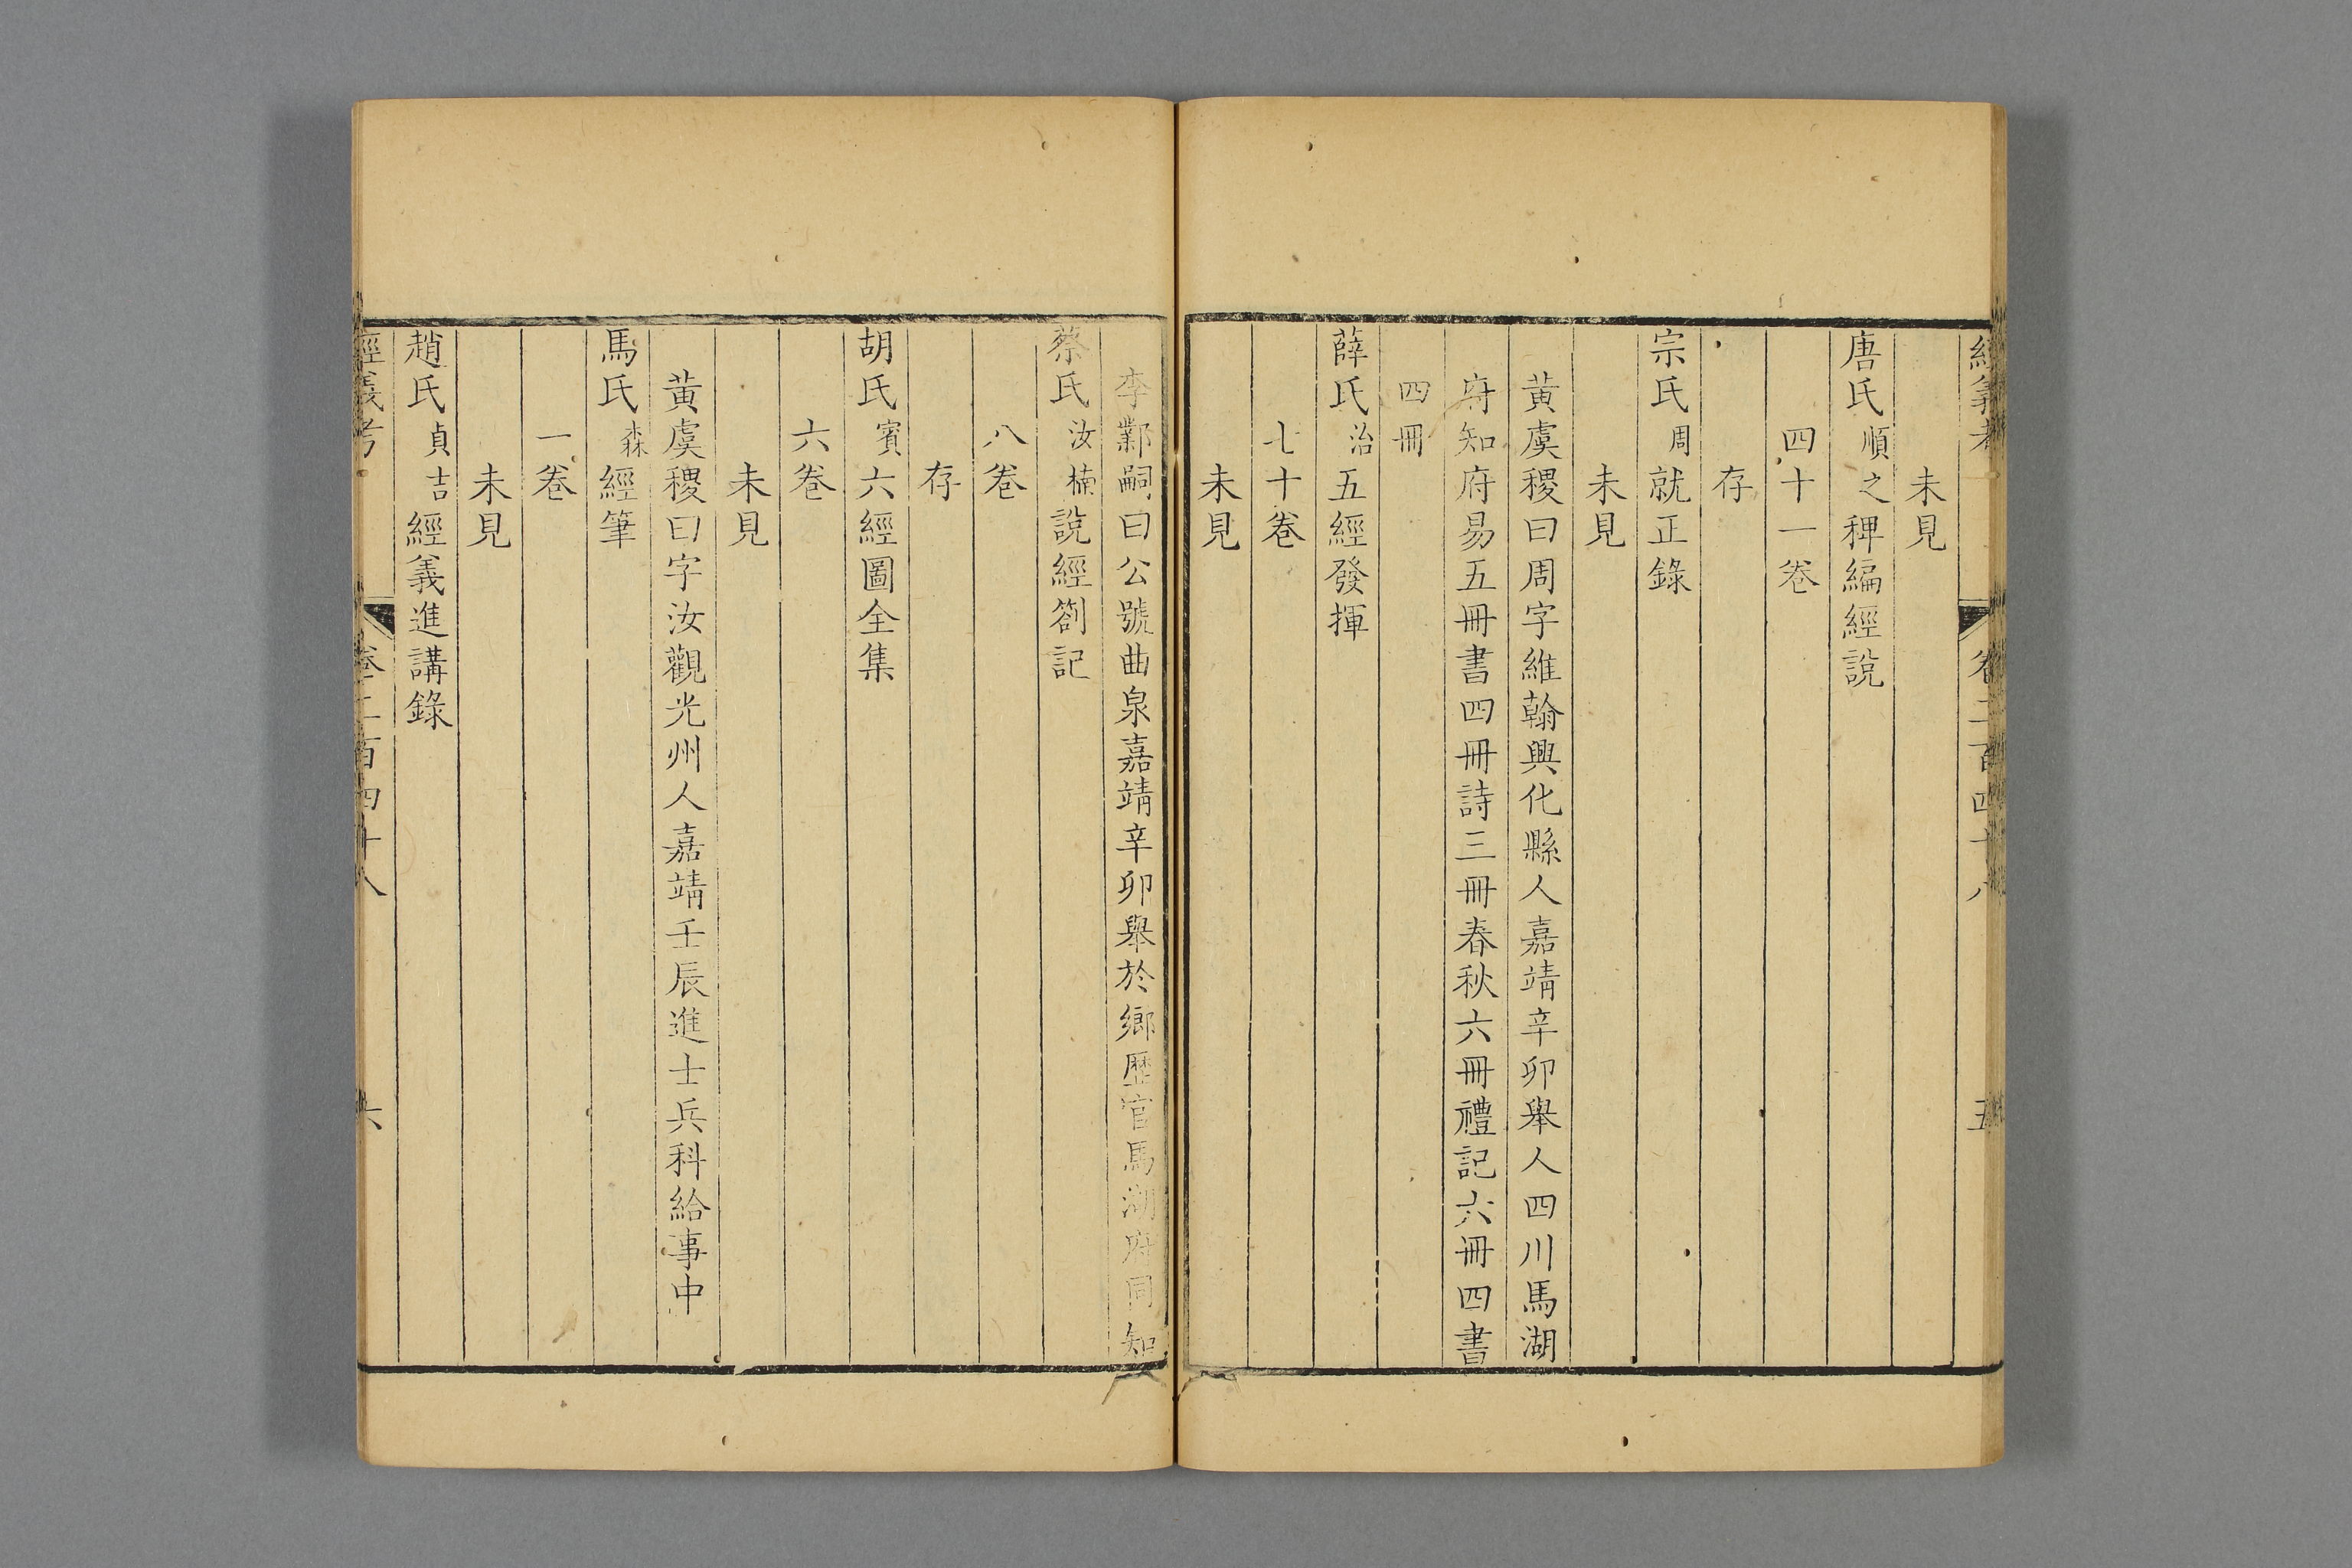 經義考 卷二百四十八 五
未見
唐氏順之稗編經說
四十一卷
存
宗氏周就正錄
未見
黃虞稷曰周字維翰興化縣人嘉靖辛卯舉人四川馬湖
府知府易五冊書四冊詩三冊春秋六冊禮記六冊四書
四冊
薛氏治五經發揮
七十卷
未見
李鄴嗣曰公號曲泉嘉靖辛卯舉於鄉歷官馬湖府同知
蔡氏汝楠說經劄記
八卷
存
胡氏賓六經圖全集
六卷
未見
黃虞稷曰字汝觀光州人嘉靖壬辰進士兵科給事中
馬氏森經筆
一卷
未見
趙氏貞吉經義進講錄
經義考 卷二百四十八 六